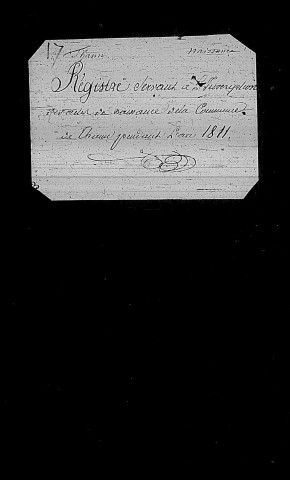 17 Thann naissance
Régistre Servant a L'Inscription
des actes de naissance dela Commune
de Thann pendant L'an 1811.